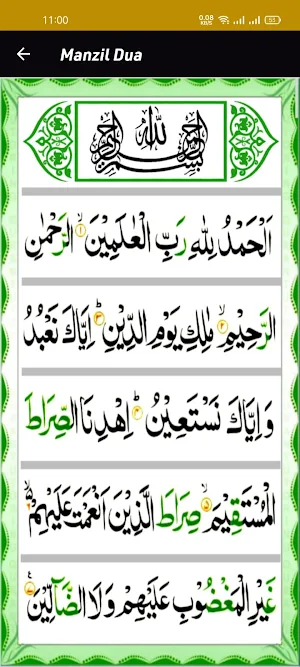 11:00 0.08 KB/S 53
Manzil Dua
بِسْمِ اللّٰهِ الرَّحْمٰنِ الرَّحِيْمِ
اَلْحَمْدُ لِلّٰهِ رَبِّ الْعٰلَمِيْنَ ۙ‏﴿۱﴾ الرَّحْمٰنِ
الرَّحِيْمِ ۙ‏﴿۲﴾ مٰلِكِ يَوْمِ الدِّيْنِ ؕ‏﴿۳﴾ اِيَّاكَ نَعْبُدُ
وَ اِيَّاكَ نَسْتَعِيْنُ ؕ‏﴿۴﴾ اِهْدِنَا الصِّرَاطَ
الْمُسْتَقِيْمَ ۙ‏﴿۵﴾ صِرَاطَ الَّذِيْنَ اَنْعَمْتَ عَلَيْهِمْ
غَيْرِ الْمَغْضُوْبِ عَلَيْهِمْ وَ لَا الضَّآلِّيْنَ